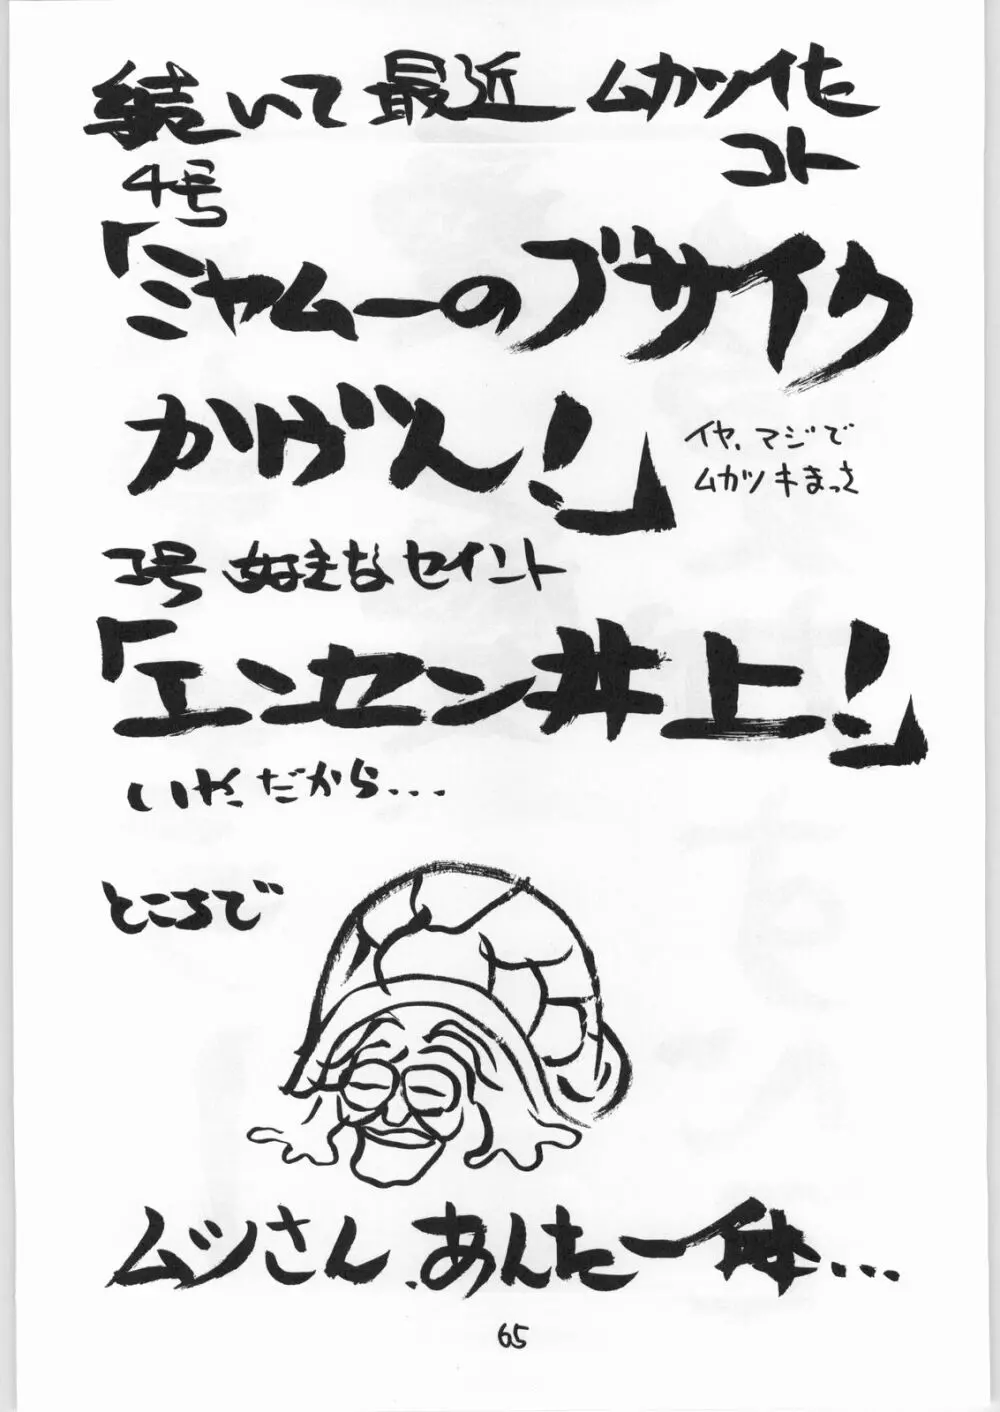 続いて最近 ムカツイた
コト
4号
「ミヤムーのブサイク
かげん!」
イヤ、マジで
ムカツキまっさ
3号 好きなセイント
「エンセン井上!」
いや、だから...
ところで
ムツさん、あんた一体...
65